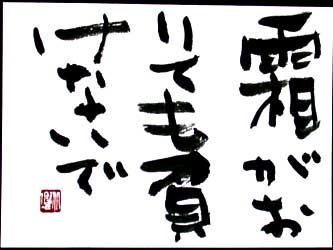 霜がお
りても負
けないで